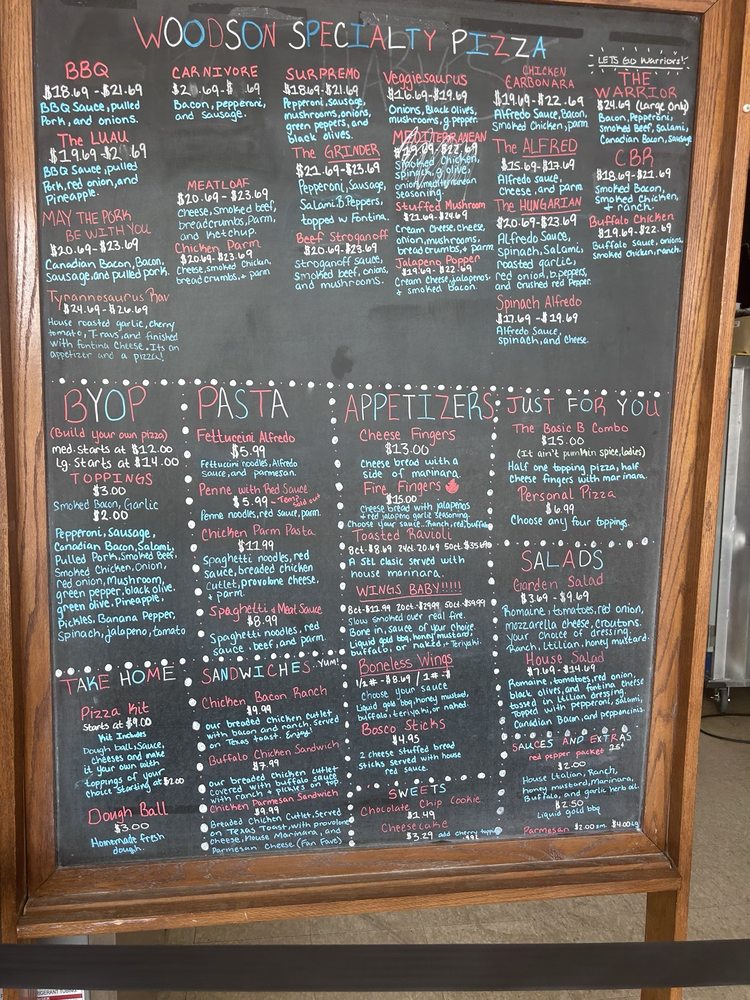 WOODSON SPECIALTY PIZZA
BBQ
$18.69-$21.69
BBQ Sauce, pulled
Pork, and onions.
The LUAU
$19.69-$2 .69
BBQ Sauce, pulled
Pork, red onion, and
Pineapple.
MAY THE PORK
BE WITH YOU
$20.69-$23.69
Canadian Bacon, Bacon,
Sausage, and pulled pork.
Tyrannosaurus Rav
$24.69-$26.69
House roasted garlic, cherry
tomato, T-ravs, and finished
with fontina cheese. Its an
appetizer and a pizza!
CARNIVORE
$2 .69-$ .69
Bacon, pepperoni,
and sausage.
MEATLOAF
$20.69-$23.69
Cheese, smoked beef,
breadcrumbs, Parm,
and Ketchup.
Chicken Parm
$20.69-$23.69
Cheese, smoked chicken,
bread crumbs, + parm
SURPREMO
$18.69-$21.69
Pepperoni, sausage,
mushrooms, onions,
green peppers, and
black olives.
The GRINDER
$21.69-$23.69
Pepperoni, Sausage,
Salami, B. Peppers,
topped w Fontina.
Beef Stroganoff
$20.69-$23.69
Stroganoff Sauce,
Smoked beef, onions,
and mushrooms.
Veggiesaurus
$16.69-$19.69
Onions, Black Olives,
mushrooms, g. pepper
MEDITERRANEAN
$19.69-$22.69
Smoked chicken,
spinach, g. olive,
onion, mediterranean
seasoning
Stuffed Mushroom
$21.69-$24.69
Cream cheese, cheese,
onion, mushrooms,
bread crumbs, + parm
Jalapeno Popper
$19.69-$22.69
Cream Cheese, jalapenos,
+ smoked bacon
CHICKEN
CARBONARA
$19.69-$22.69
Alfredo Sauce, Bacon,
Smoked Chicken, parm
The ALFRED
$15.69-$17.69
Alfredo sauce,
Cheese, and parm
The HUNGARIAN
$20.69-$23.69
Alfredo Sauce,
Spinach, Salami,
roasted garlic,
red onion, b. peppers,
and crushed red Pepper.
Spinach Alfredo
$17.69-$19.69
Alfredo Sauce,
spinach, and cheese.
LETS GO Warriors!
THE
WARRIOR
$24.69 (Large Only)
Bacon, Pepperoni,
Smoked Beef, Salami,
Canadian Bacon, Sausage
CBR
$18.69-$21.69
Smoked Bacon,
Smoked chicken,
+ ranch.
Buffalo Chicken
$19.69-$22.69
Buffalo Sauce, onions,
smoked chicken, ranch.
BYOP
(Build your own pizza)
med. starts at $12.00
lg. starts at $14.00
TOPPINGS
$3.00
Smoked Bacon, Garlic
$2.00
Pepperoni, Sausage,
Canadian Bacon, Salami,
Pulled Pork, Smoked Beef,
Smoked Chicken, onion,
red onion, Mushroom,
green pepper, black olive,
green olive, Pineapple,
Pickles, Banana Pepper,
Spinach, jalapeno, tomato
TAKE HOME
Pizza Kit
Starts at $9.00
Kit Includes
Dough ball, Sauce,
cheeses and make
it your own with
toppings of your
choice Starting at $2.00
Dough Ball
$3.00
Homemade fresh
dough.
PASTA
Fettuccini Alfredo
$5.99
Fettuccini noodles, Alfredo
sauce, and parmesan.
Penne with Red Sauce
$5.99 - Temp sold out
Penne noodles, red sauce, parm.
Chicken Parm Pasta
$11.99
Spaghetti noodles, red
sauce, breaded chicken
cutlet, provolone cheese,
+ parm.
Spaghetti + Meat Sauce
$8.99
Spaghetti noodles, red
sauce + beef, and parm.
SANDWICHES...YUM!
Chicken Bacon Ranch
$9.99
our breaded chicken cutlet
with bacon and ranch. Served
on Texas toast. Enjoy!
Buffalo Chicken Sandwich
$7.99
our breaded chicken cutlet
covered with buffalo sauce
with ranch + pickles on top.
Chicken Parmesan Sandwich
$9.99
Breaded Chicken Cutlet, Served
on Texas Toast, with provolone
cheese, House Marinara, and
Parmesan Cheese (Fan Fave)
APPETIZERS
Cheese Fingers
$13.00
Cheese bread with a
side of marinara.
Fire Fingers
$15.00
Cheese bread with jalapeños
+ red jalapeno garlic seasoning.
Choose your sauce.. Ranch, red, buffalo
Toasted Ravioli
8ct.-$8.69 24ct.-20.69 50ct.-$35.69
A StL Clasic served with
house marinara.
WINGS BABY!!!!!
8ct-$11.99 20ct-$29.99 50ct-$59.99
Slow smoked over real fire.
Bone in, sauce of your choice.
Liquid gold bbq, honey mustard,
buffalo, or naked. + Teriyaki.
Boneless Wings
1/2 #-$8.69 / 1#-$
Choose your sauce
Liquid gold bbq, honey mustard,
buffalo, teriyaki, or naked.
Bosco Sticks
$4.95
2 cheese stuffed bread
sticks served with house
red sauce.
SWEETS
Chocolate Chip Cookie
$1.49
Cheesecake
$3.29 add cherry topping
.99¢
JUST FOR YOU
The Basic B Combo
$15.00
(It ain't pumpkin spice, ladies)
Half one topping pizza, half
cheese fingers with marinara.
Personal Pizza
$6.99
Choose any four toppings.
SALADS
Garden Salad
$3.69-$9.69
Romaine, tomatoes, red onion,
mozzarella cheese, croutons.
Your choice of dressing.
Ranch, Itilian, honey mustard.
House Salad
$7.69-$14.69
Romaine, tomatoes, red onion,
black olives, and fontina cheese
tossed in Itilian dressing.
Topped with pepperoni, salami,
Canadian Bacon, and pepperoncinis.
SAUCES AND EXTRAS
red pepper packet 25¢
$2.00
House Italian, Ranch,
honey mustard, Marinara,
Buffalo, and garlic herb oil.
$2.50
Liquid gold bbq
Parmesan $2.00 sm. $4.00 Lg